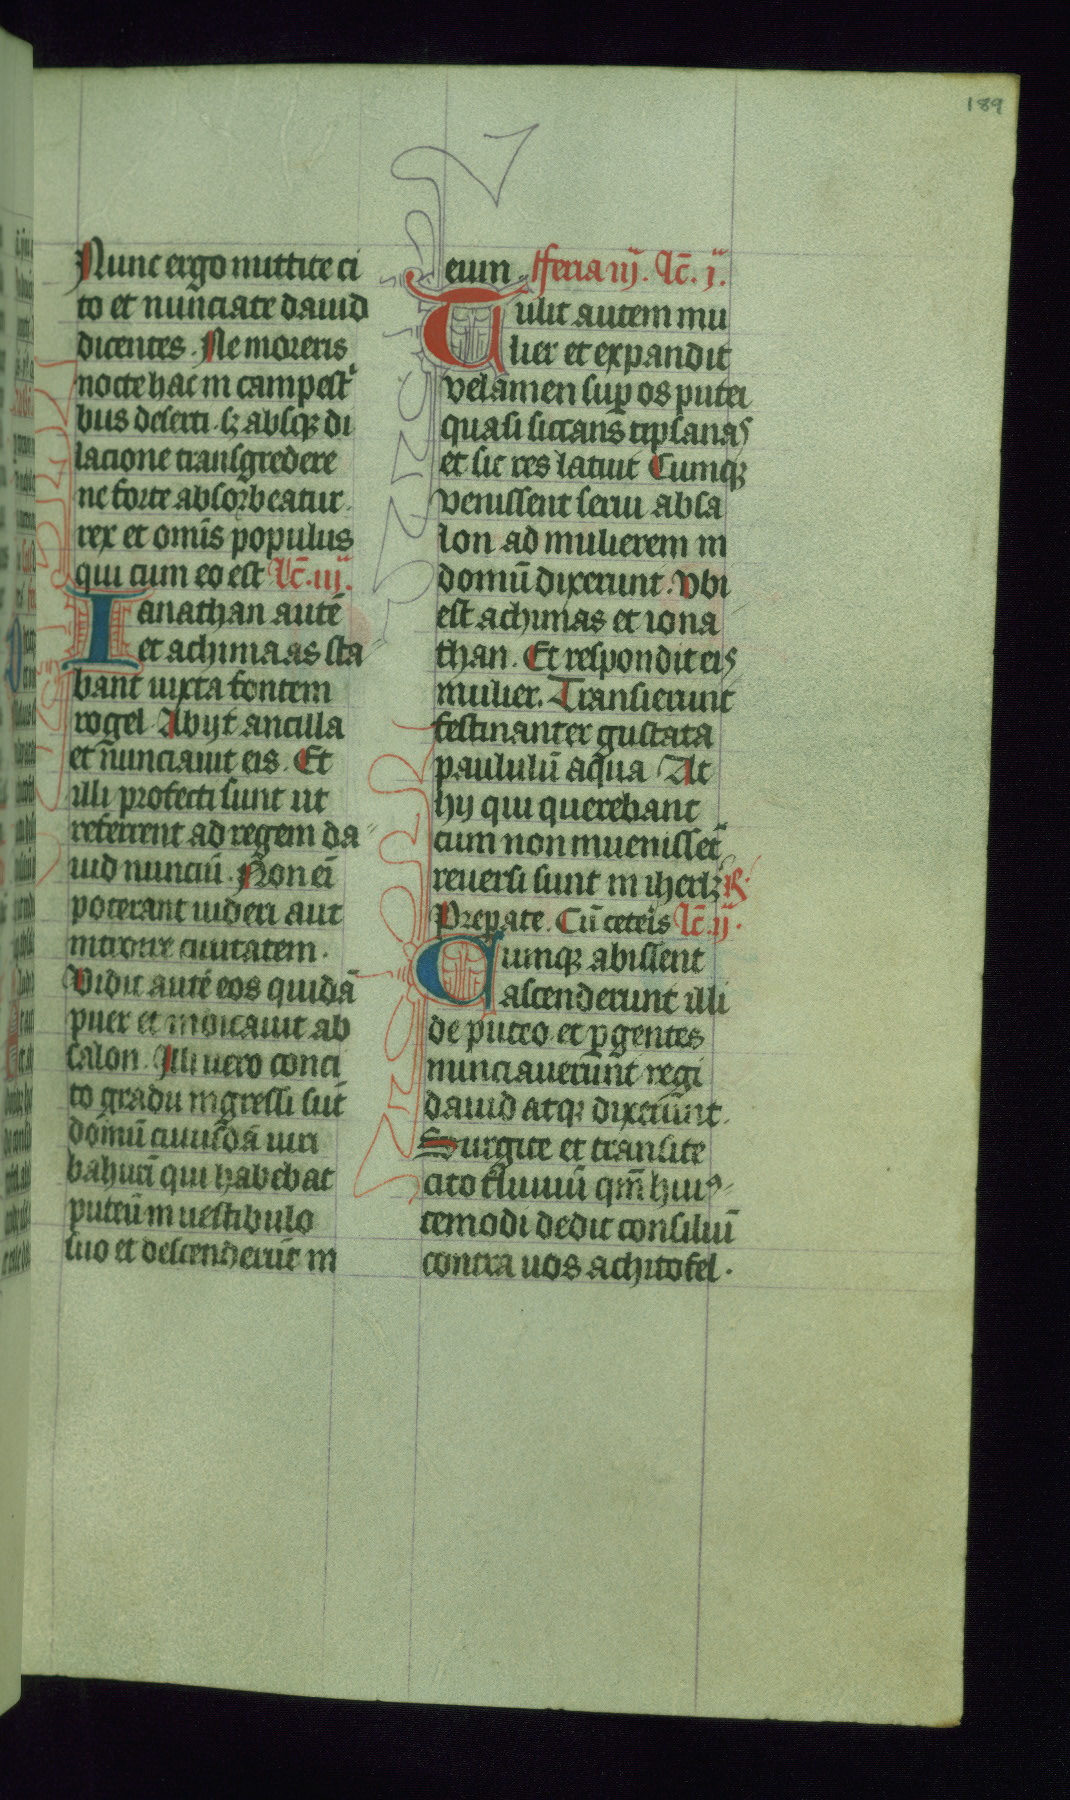 189
Nunc ergo mittite ci
to et nunciate dauid
dicentes. Ne moreris
nocte hac in campestͥ
bus deserti. sꝫ absqꝫ di
lacione transgredere
ne forte absorbeatur.
rex et omīs populus
qui cum eo est Lc̄. iij.
Ianathan autē
et achimaas sta
bant iuxta fontem
rogel. Abijt ancilla
et nunciauit eis. Et
illi profecti sunt ut
referrent ad regem da
uid nunciū. Non eī
poterant uideri aut
introire ciuitatem.
Vidit autē eos quidā
puer et indicauit ab
salon. Illi uero conci
to gradu ingressi sūt
domū cuiusdā uiri
bahurī qui habebat
puteū in uestibulo
suo et descenderūt in
eum. Fferia iij. Lc̄. j.
Tulit autem mu
lier et expandit
velamen suꝑ os putei
quasi siccans tipsanas
et sic res latuit Cumqꝫ
venissent serui absa
lon ad mulierem in
domū dixerunt. Vbi
est achimas et iona
than. Et respondit eis
mulier. Transierunt
festinanter gustata
paululū aqua. At
hij qui querebant
cum non inuenissēt
reuersi sunt in iherlꝫ ℟.
Preꝑate. Cū ceteīs Lc̄. ij.
Cumqꝫ abissent
ascenderunt illi
de puteo et ꝑgentes
nunciauerunt regi
dauid atqꝫ dixerunt.
Surgite et transite
cito fluuiū qm̄ huiꝰ
cemodi dedit consiliuī
contra uos achitofel.